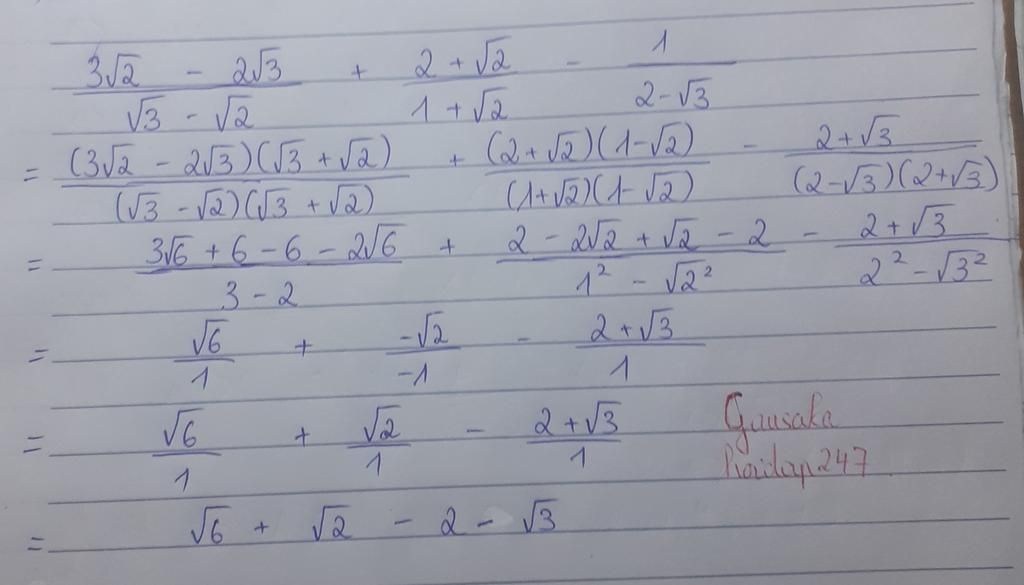 (3√2 - 2√3)/(√3 - √2) + (2 + √2)/(1 + √2) - 1/(2 - √3)
= ((3√2 - 2√3)(√3 + √2))/((√3 - √2)(√3 + √2)) + ((2 + √2)(1 - √2))/((1 + √2)(1 - √2)) - (2 + √3)/((2 - √3)(2 + √3))
= (3√6 + 6 - 6 - 2√6)/(3 - 2) + (2 - 2√2 + √2 - 2)/(1² - √2²) - (2 + √3)/(2² - √3²)
= √6/1 + -√2/-1 - (2 + √3)/1
= √6/1 + √2/1 - (2 + √3)/1
= √6 + √2 - 2 - √3